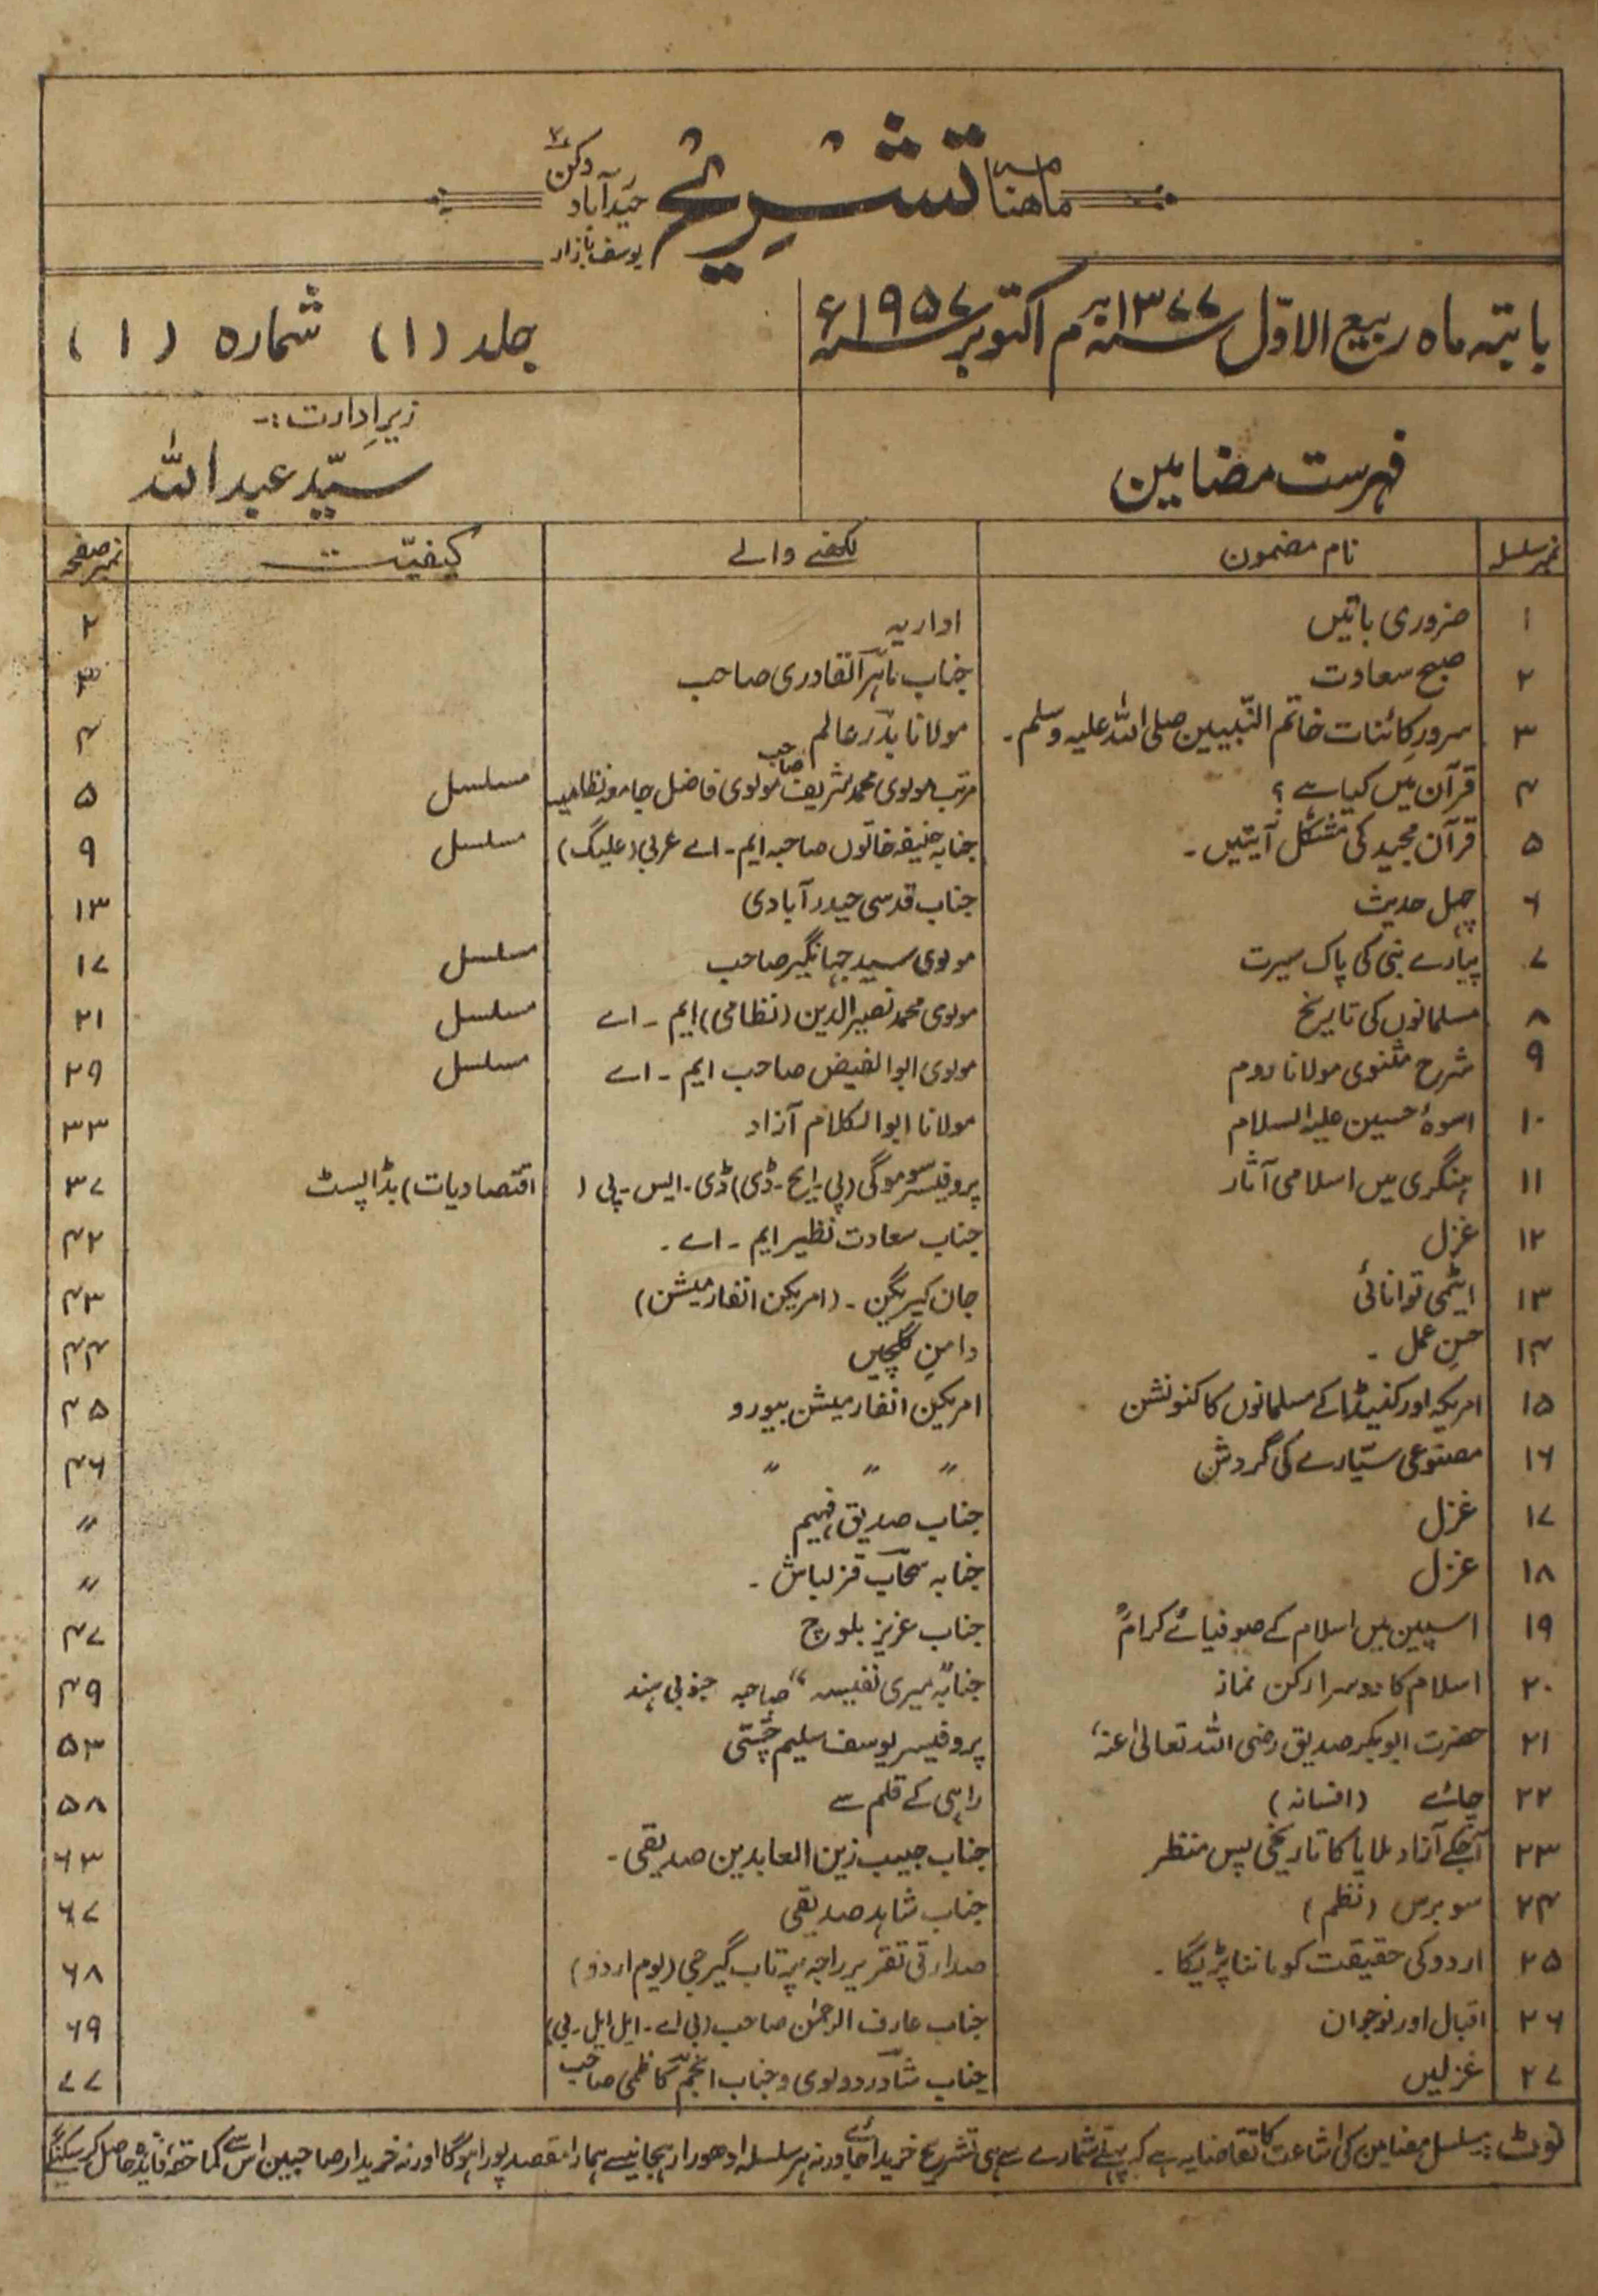 ماهنامہ تشریح حیدرآباد دکن ۲
یوسف بازار
بابتہ ماہ ربیع الاوّل سنہ ۱۳۷۷ھ م اکتوبر سنہ ۱۹۵۷ء
جلد (۱) شمارہ (۱)
فہرست مضامین
زیرِ اِدارت :-
سیّد عبد اللہ
نمبر سلسلہ نام مضمون لکھنے والے کیفیّت نمبر صفحہ
۱ ضروری باتیں اداریہ ۲
۲ صبح سعادت جناب ماہر القادری صاحب ۳
۳ سرورِ کائنات خاتم النّبیین صلی اللہ علیہ وسلم ۔ مولانا بدر عالم ۴
۴ قرآن میں کیا ہے ؟ مرتب مولوی محمد شریف صاحب مولوی فاضل جامعہ نظامیہ مسلسل ۵
۵ قرآن مجید کی مشکل آیتیں ۔ جنابہ حنیفہ خاتون صاحبہ ایم ۔ اے عربی (علیگ) مسلسل ۹
۶ چہل حدیث جناب قدسی حیدرآبادی ۱۳
۷ پیارے نبی کی پاک سیرت مولوی سید جہانگیر صاحب مسلسل ۱۷
۸ مسلمانوں کی تاریخ مولوی محمد نصیر الدین (نظامی) ایم ۔ اے مسلسل ۲۱
۹ شرح مثنوی مولانا روم مولوی ابو الفیض صاحب ایم ۔ اے مسلسل ۲۹
۱۰ اسوۂ حسین علیہ السلام مولانا ابو الکلام آزاد ۳۳
۱۱ ہنگری میں اسلامی آثار پروفیسر سوموگی (پی ۔ ایچ ۔ ڈی) ڈی ۔ ایس ۔ پی ( اقتصادیات) بڈاپسٹ ۳۷
۱۲ غزل جناب سعادت نظیر ایم ۔ اے ۔ ۴۲
۱۳ ایٹمی توانائی جان کیریگن ۔ (امریکن انفارمیشن) ۴۳
۱۴ حسنِ عمل ۔ دامنِ گلچیں ۴۴
۱۵ امریکہ اور کنیڈا کے مسلمانوں کا کنونشن امریکین انفارمیشن بیورو ۴۵
۱۶ مصنوعی سیّارے کی گردش 〃 〃 〃 ۴۶
۱۷ غزل جناب صدیق فہیم 〃
۱۸ غزل جنابہ سحاب قزلباش ۔ 〃
۱۹ اسپین میں اسلام کے صوفیائے کرامؒ جناب عزیز بلوچ ۴۷
۲۰ اسلام کا دوسرا رکن نماز جنابہ ”میری نفیسہ“ صاحبہ جنوبی ہند ۴۹
۲۱ حضرت ابوبکر صدیق رضی اللہ تعالیٰ عنہٗ پروفیسر یوسف سلیم چشتی ۵۳
۲۲ چائے (افسانہ) راہی کے قلم سے ۵۸
۲۳ آجکے آزاد ملایا کا تاریخی پس منظر جناب حبیب زین العابدین صدیقی ۔ ۶۳
۲۴ سو برس (نظم) جناب شاہد صدیقی ۶۷
۲۵ اردو کی حقیقت کو ماننا پڑیگا ۔ صدارتی تقریر راجہ پرتاب گیر جی (یوم اردو) ۶۸
۲۶ اقبال اور نوجوان جناب عارف الرحمٰن صاحب (بی اے ۔ ایل ایل ۔ بی) ۶۹
۲۷ غزلیں جناب شاد ردولوی و جناب انجم کاظمی صاحب ۷۷
نوٹ :- مسلسل مضامین کی اشاعت کا تقاضا یہ ہے کہ پہلے شمارے سے ہی تشریح خریدا جائے ورنہ ہر سلسلہ ادھورا رہجانیسے ہمارا مقصد پورا ہوگا اور نہ خریدار صاحبین اس سے کما حقہٗ فائدہ حاصل کرسکینگے